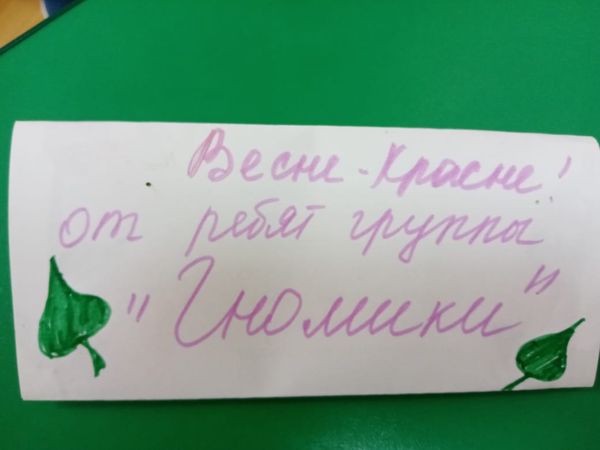 Весне-Красне!
от ребят группы
"Гномики"